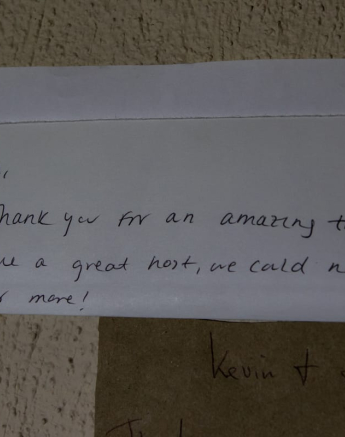 hank you for an amazing t
a great host, we could n
more!
Kevin +